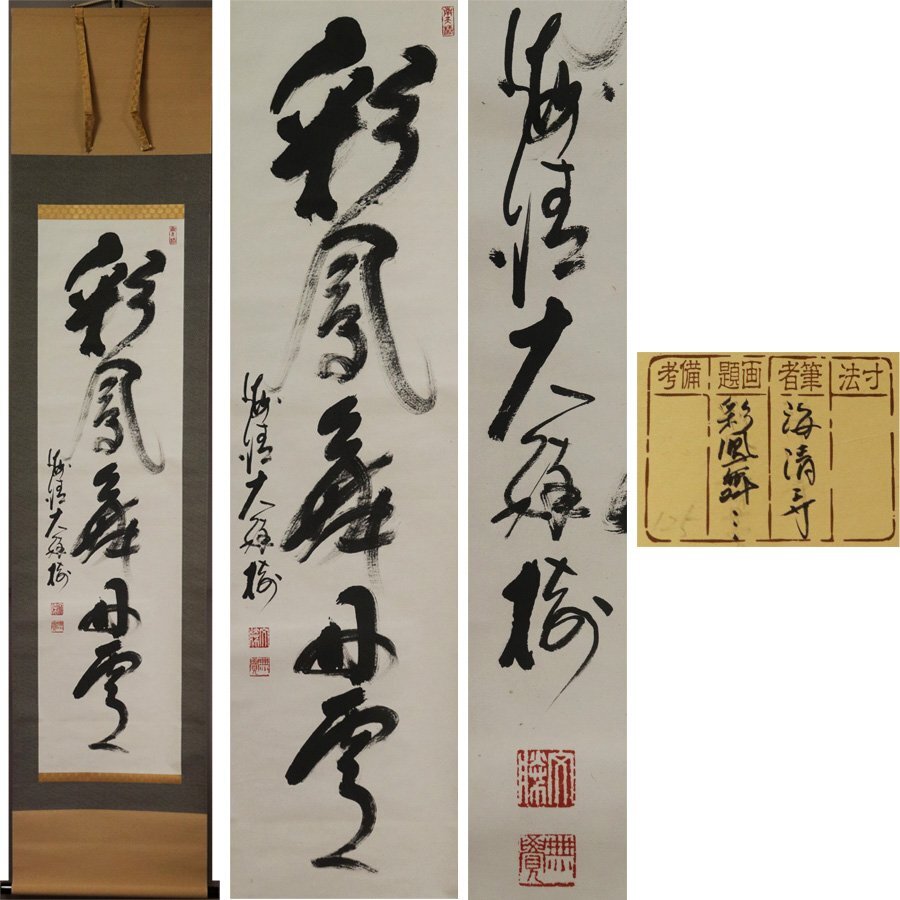 彩鳳舞丹霄
海清大穣樹
彩鳳舞丹霄
海清大穣樹
海清大穣樹
無覚
寸法
筆者
画題
備考
海清寺
彩鳳舞…